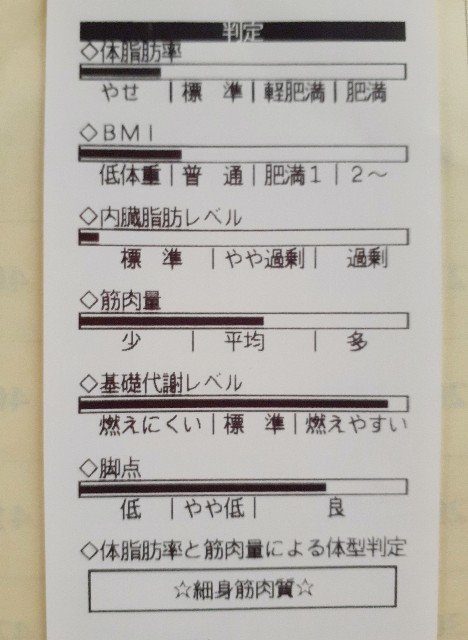 判定
◇体脂肪率
やせ |標 準|軽肥満|肥満
◇BMI
低体重|普 通|肥満1|2～
◇内臓脂肪レベル
標 準 |やや過剰| 過剰
◇筋肉量
少 | 平均 | 多
◇基礎代謝レベル
燃えにくい|標 準|燃えやすい
◇脚点
低 |やや低| 良
◇体脂肪率と筋肉量による体型判定
☆細身筋肉質☆